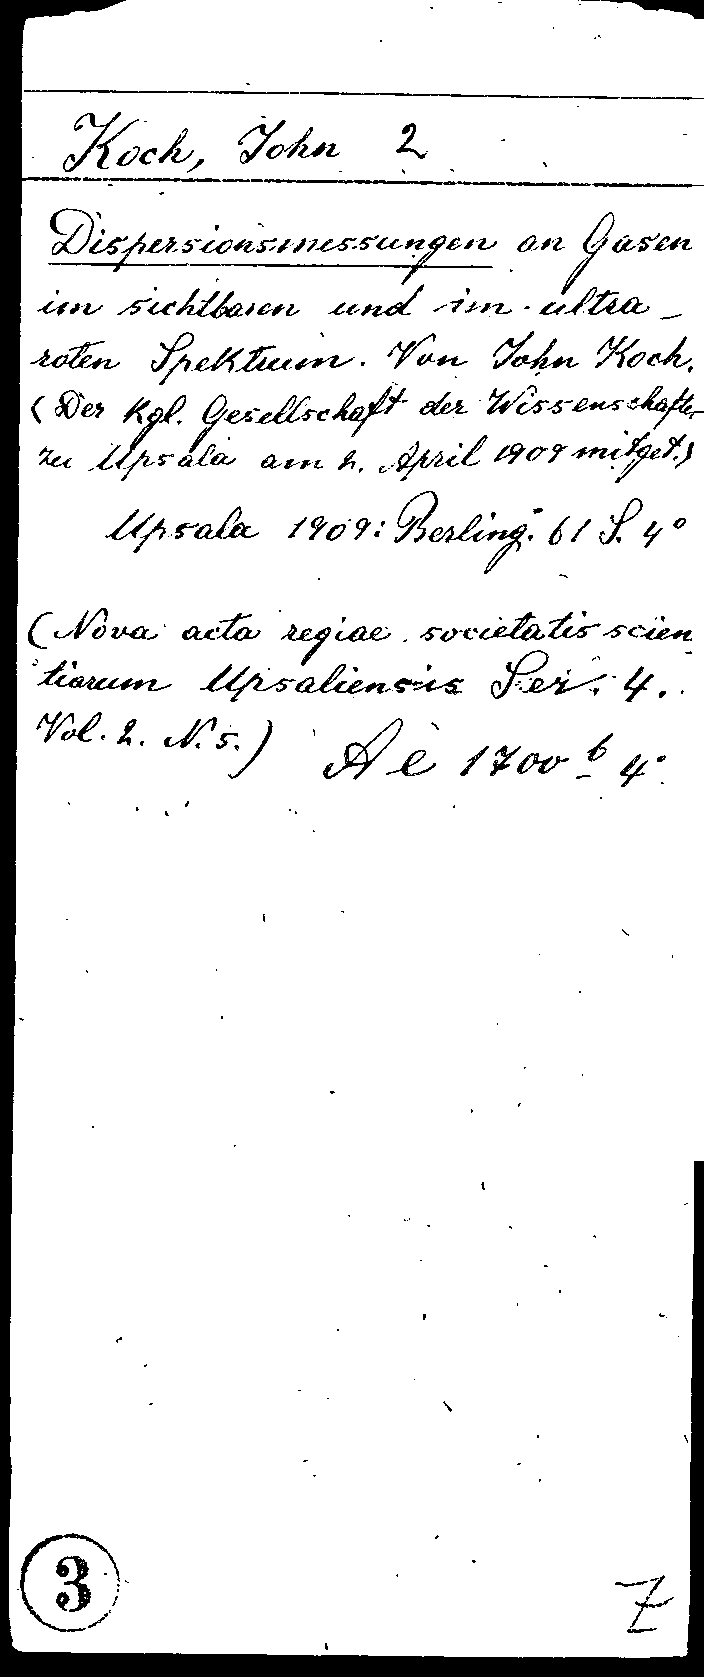 Koch, John 2
Dispersionsmessungen an Gasen
im sichtbaren und im ultra-
roten Spektrum. Von John Koch.
(Der Kgl. Gesellschaft der Wissenschaften
zu Upsala am 2. April 1909 mitget.)
Upsala 1909: Berling. 61 S. 4°
(Nova acta regiae societatis scien
tiarum Upsaliensis Ser. 4.
Vol. 2. N. 5.) Ae 1700 b 4°
3
Z